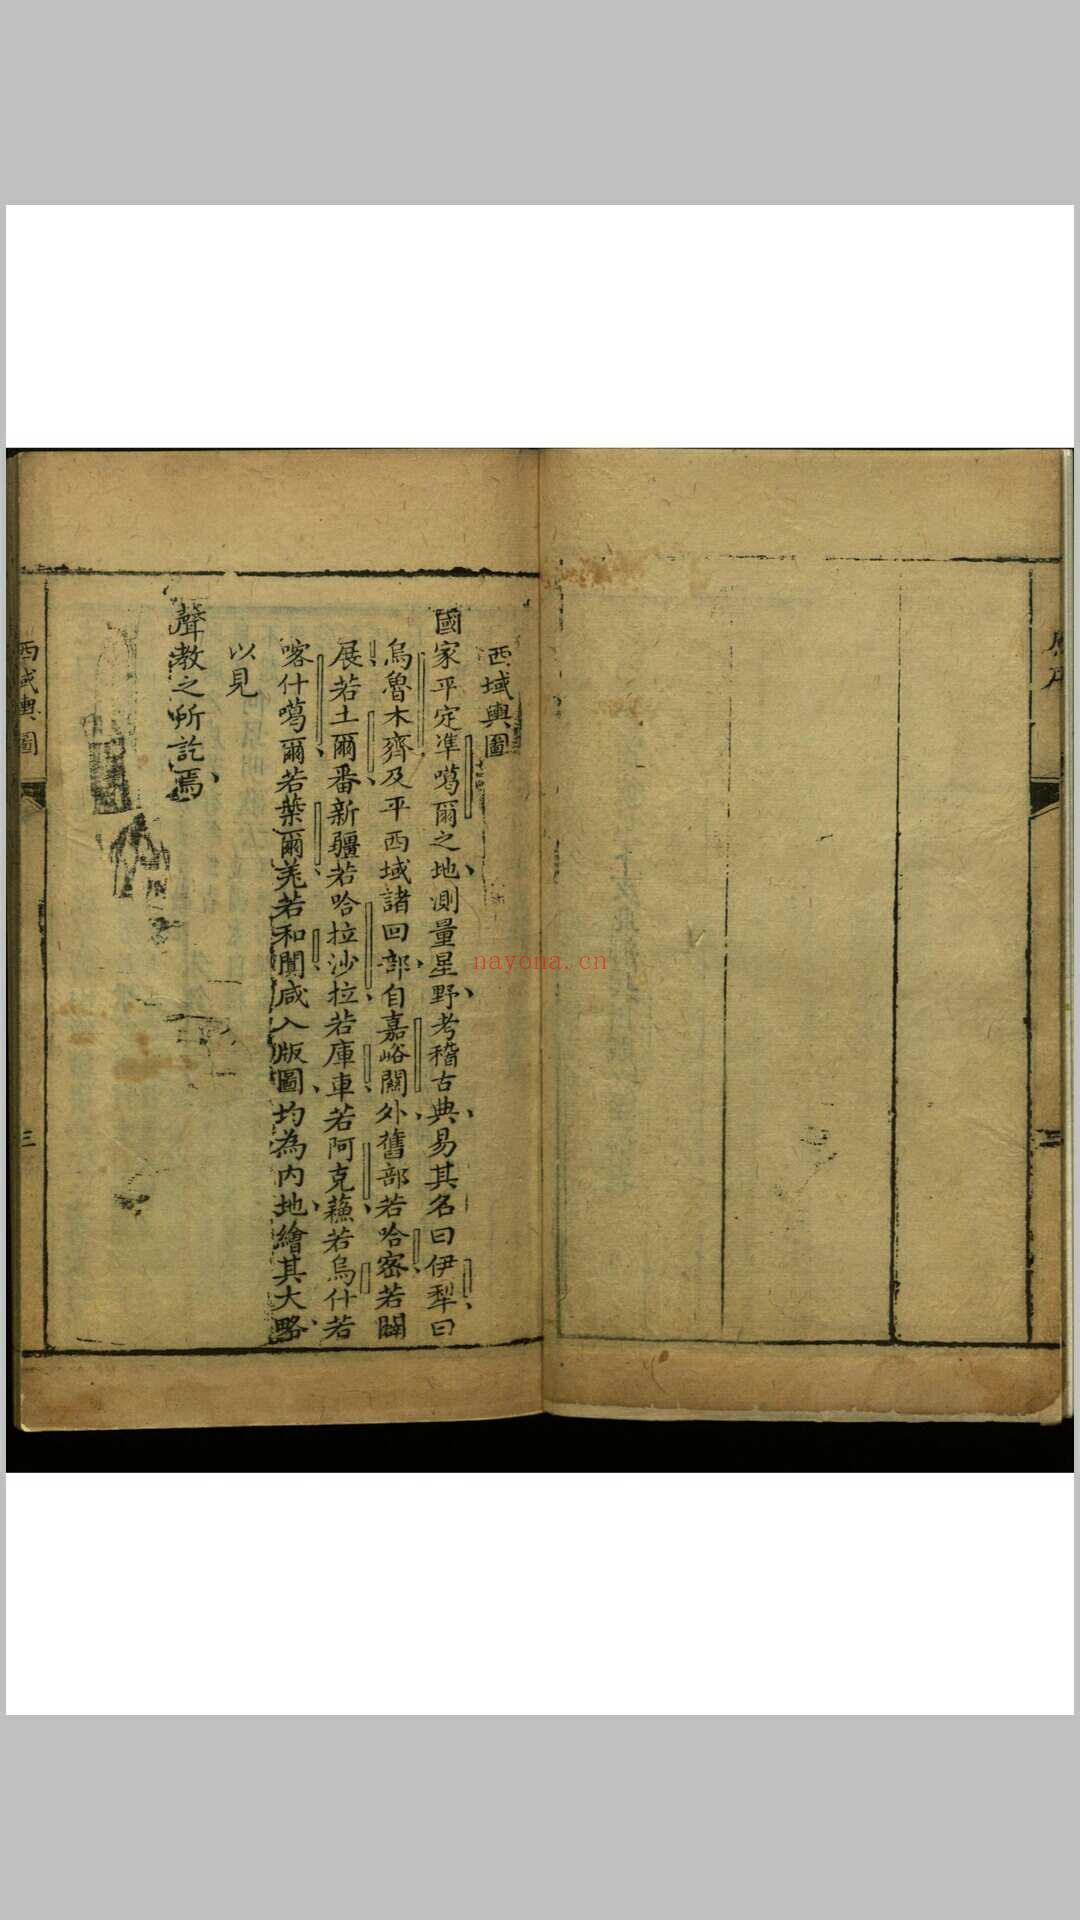 西域輿圖
國家平定準噶爾之地測量星野考稽古典易其名曰伊犁曰
烏魯木齊及平西域諸回部自嘉峪關外舊部若哈密若闢
展若土爾番新疆若哈拉沙拉若庫車若阿克蘇若烏什若
喀什噶爾若葉爾羌若和闐咸入版圖均為內地繪其大略
以見
聲教之所訖焉
西域輿圖
三
nayona.cn